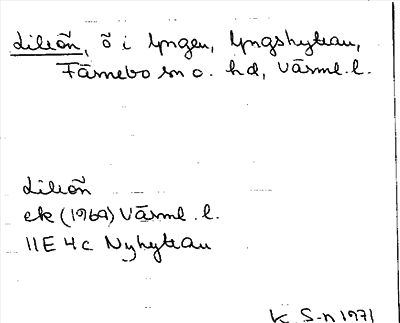 Lilleön, ö i Yngen, Yngshyttan,
Färnebo sn o. hd, Värml. l.
Lilleön
ek (1969) Värml. l.
11E 4c Nyhyttan
K. S-n 1971